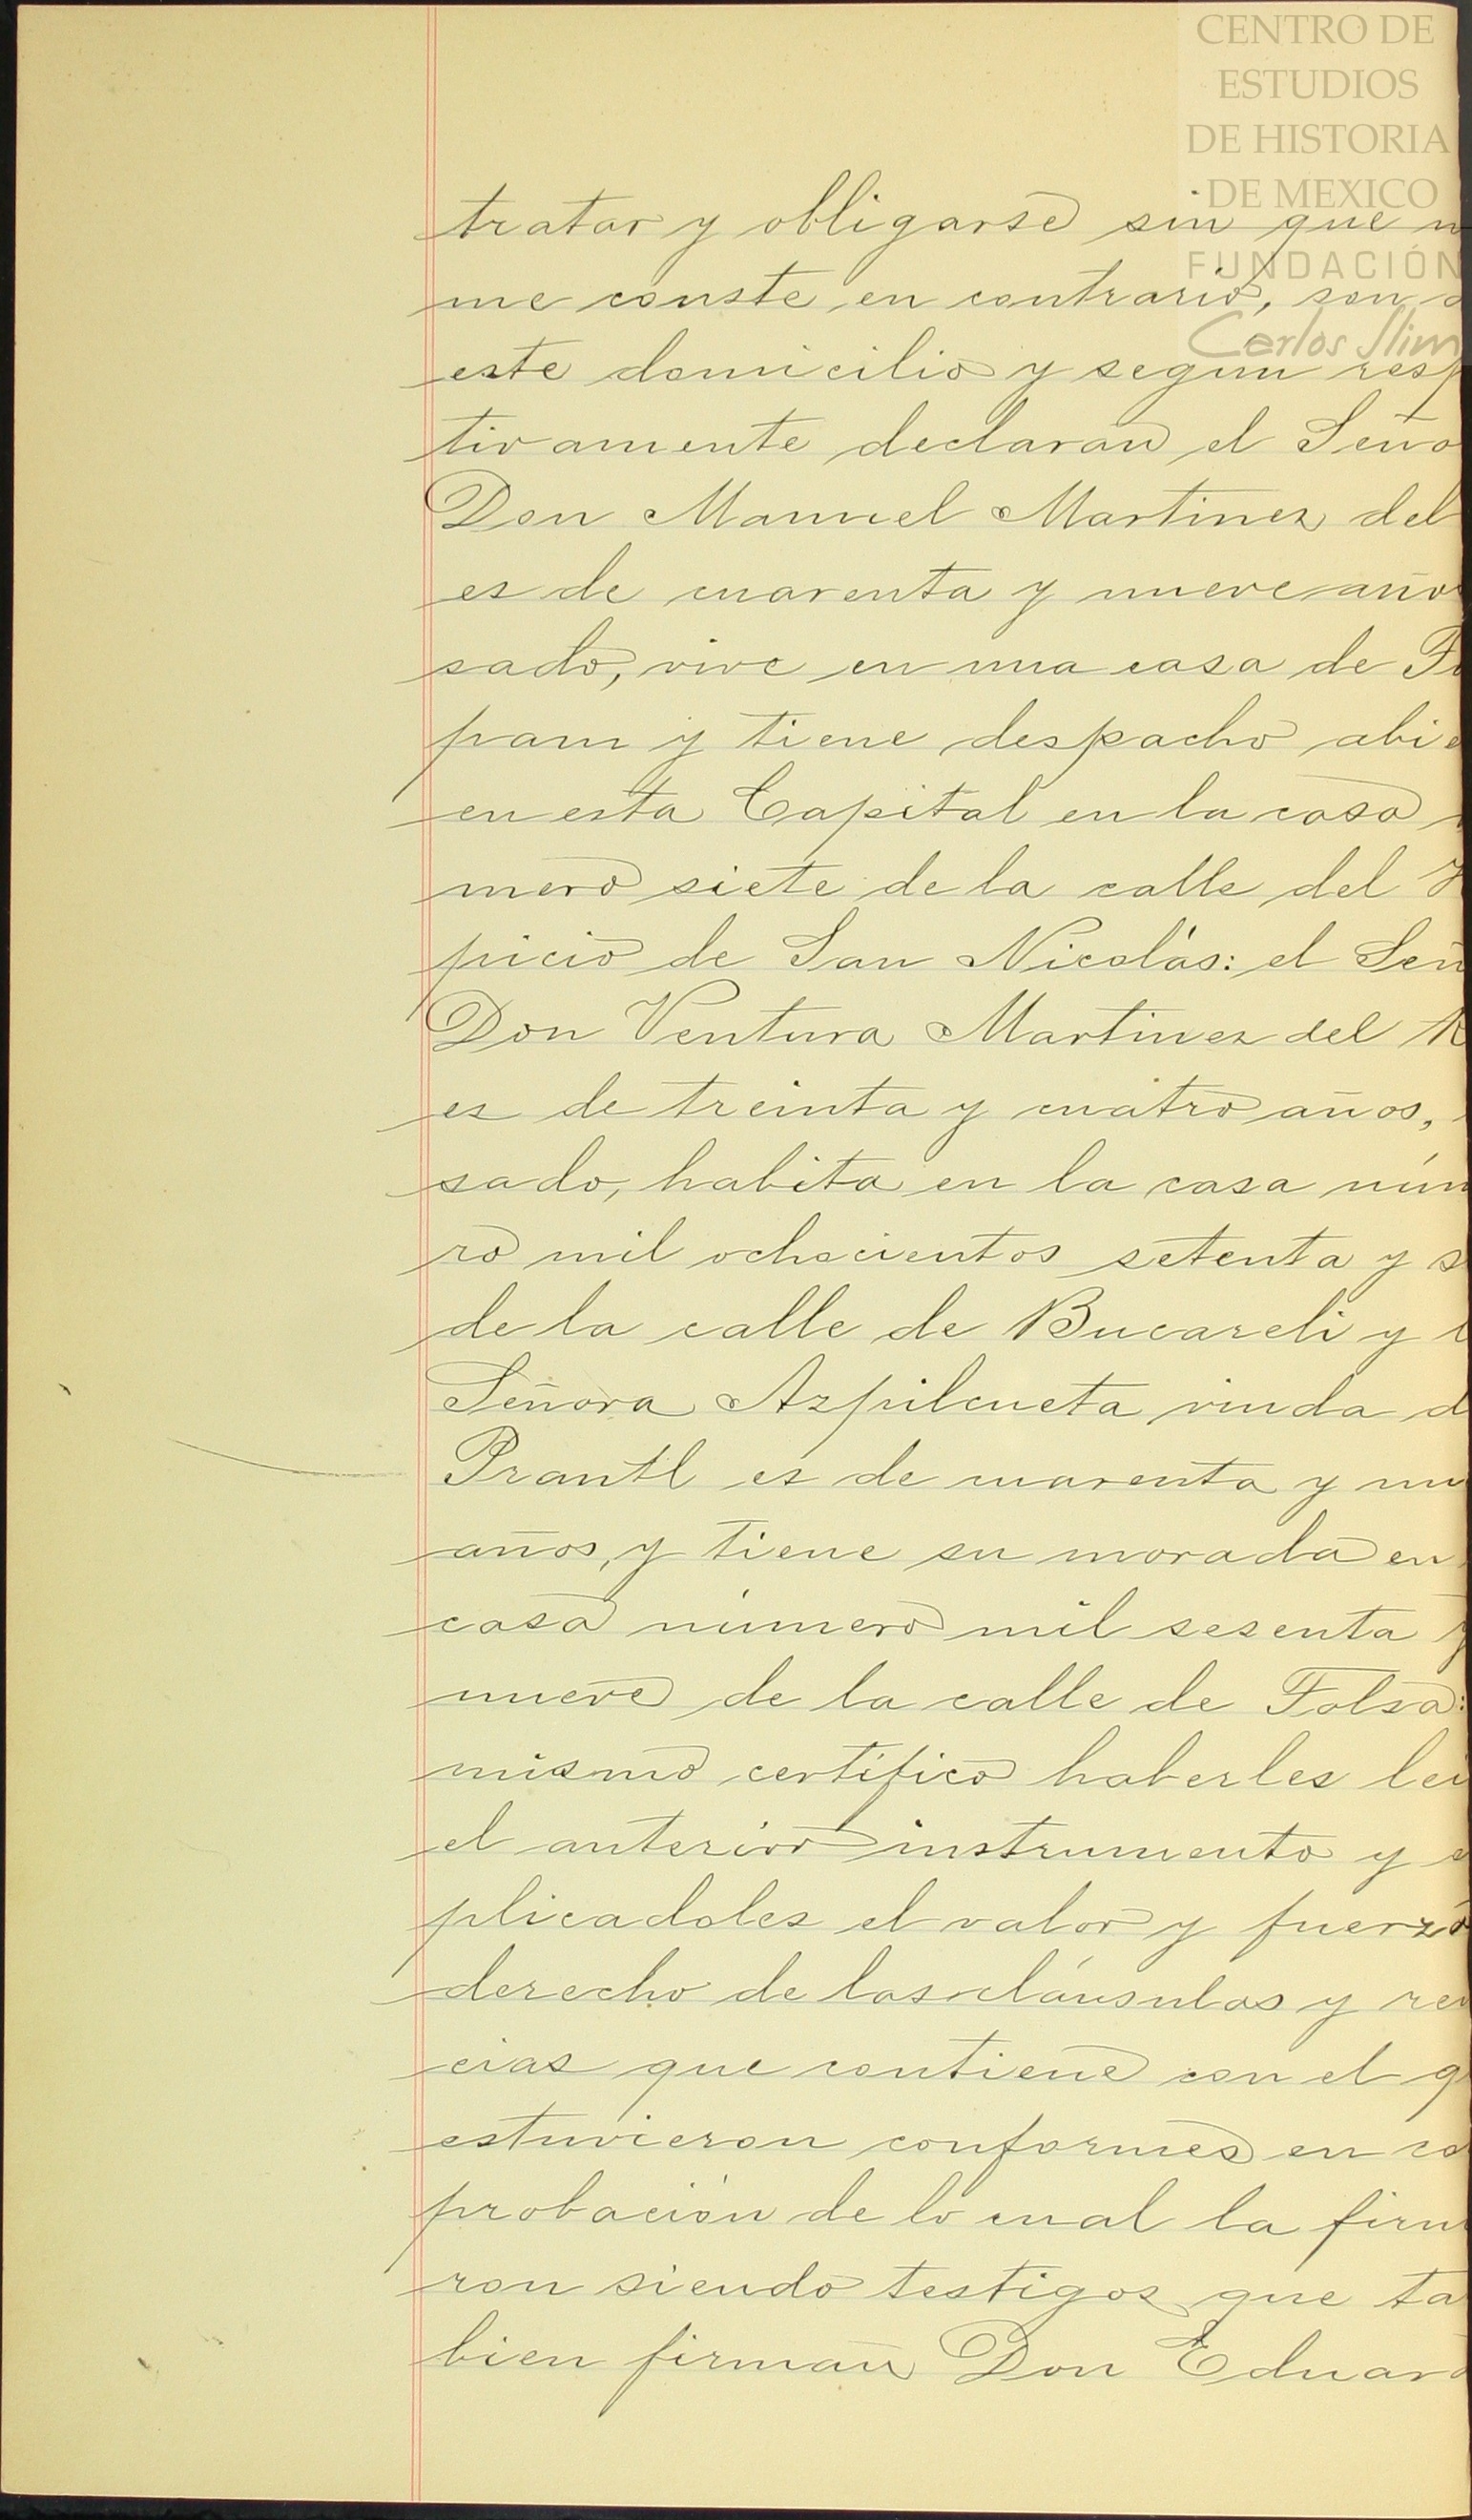 CENTRO DE
ESTUDIOS
DE HISTORIA
DE MEXICO
FUNDACIÓN
Carlos Slim
tratar y obligarse sin que
me conste en contrario, son
este domicilio y segun resp
tivamente declaran el Seño
Don Manuel Martinez del
es de cuarenta y nueve años
sado, vive en una casa de
pam y tiene despacho abie
en esta Capital en la casa
mero siete de la calle del
picio de San Nicolás: el Señ
Don Ventura Martinez del R
es de treinta y cuatro años,
sado, habita en la casa núm
ro mil ochocientos setenta y s
de la calle de Bucareli y l
Señora Azpilcueta viuda d
Prantl es de cuarenta y nu
años, y tiene su morada en
casa número mil sesenta y
nueve de la calle de Tolsa:
mismo certifico haberles lei
el anterior instrumento y e
plicadoles el valor y fuerza
derecho de las cláusulas y ren
cias que contiene con el q
estuvieron conformes en co
probación de lo cual la firm
ron siendo testigos que ta
bien firman Don Eduard